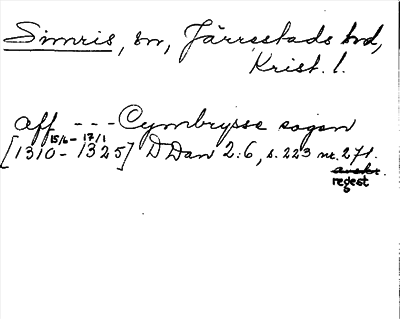 Simris, sn, Järrestads hd,
Krist. l.
aff --- Cymbrysse sogen
15/6 - 17/1
[1310 - 1325] DDan 2:6, s. 223 nr. 271.
avskr.
regest